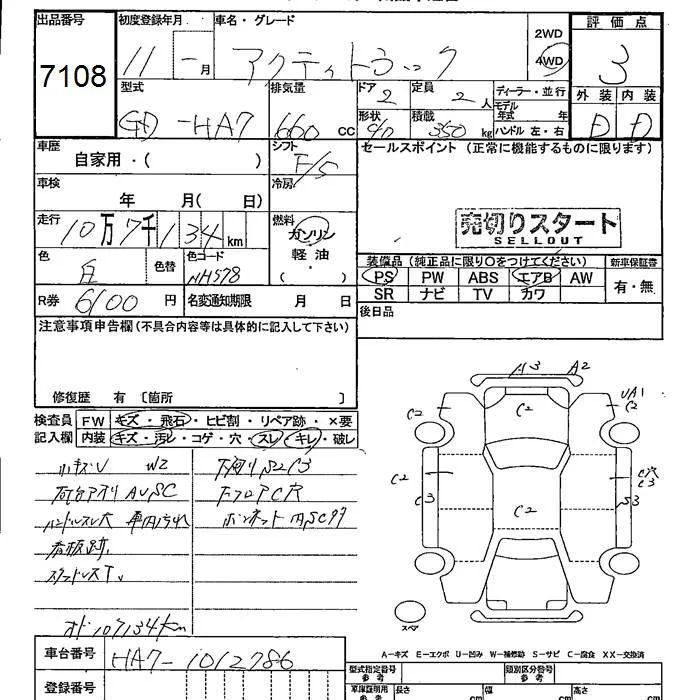 出品番号 初度登録年月 車名・グレード 評価点
7108 11 - 月 アクティトラック 2WD 4WD 3
型式 排気量 ドア 2 定員 2 人 ディーラー・並行 外装 内装
モデル年式 年
GD-HA7 660 CC 形状 積載 350 kg ハンドル 左・右 D D
車歴 自家用・( ) シフト F/5 セールスポイント (正常に機能するものに限ります)
車検 年 月( 日) 冷房
走行 10万7千134km 燃料 ガソリン 軽油 ・( )
売切りスタート
SELLOUT
色 白 色替 色コード NH578
装備品 (純正品に限り○をつけてください) 新車保証書
PS PW ABS エアB AW 有・無
SR ナビ TV カワ
R券 6100 円 名変通知期限 月 日
後日品
注意事項申告欄(不具合内容等は具体的に記入して下さい)
修復歴 有 〔箇所 〕
検査員記入欄 FW キズ・飛石・ヒビ割・リペア跡・×要
内装 キズ・汚レ・コゲ・穴・スレ・キレ・破レ
小キズU W2
荷台アオリ AUSC
ハンドルスレ大 車内汚れ
看板跡
下廻りS2C3
FフロアC穴
ボンネット内SC
オド107134km
A3 A2
C2 C2 UA1 C2
C2 C3 C2 C穴 C3 S3
スペア
A-キズ E-エクボ U-凹み W-補修跡 S-サビ C-腐食 XX-交換済
車台番号 HA7-1012786
登録番号
型式指定番号 参考 類別区分番号 参考
車庫証明用 参考 長さ cm 幅 cm 高さ cm